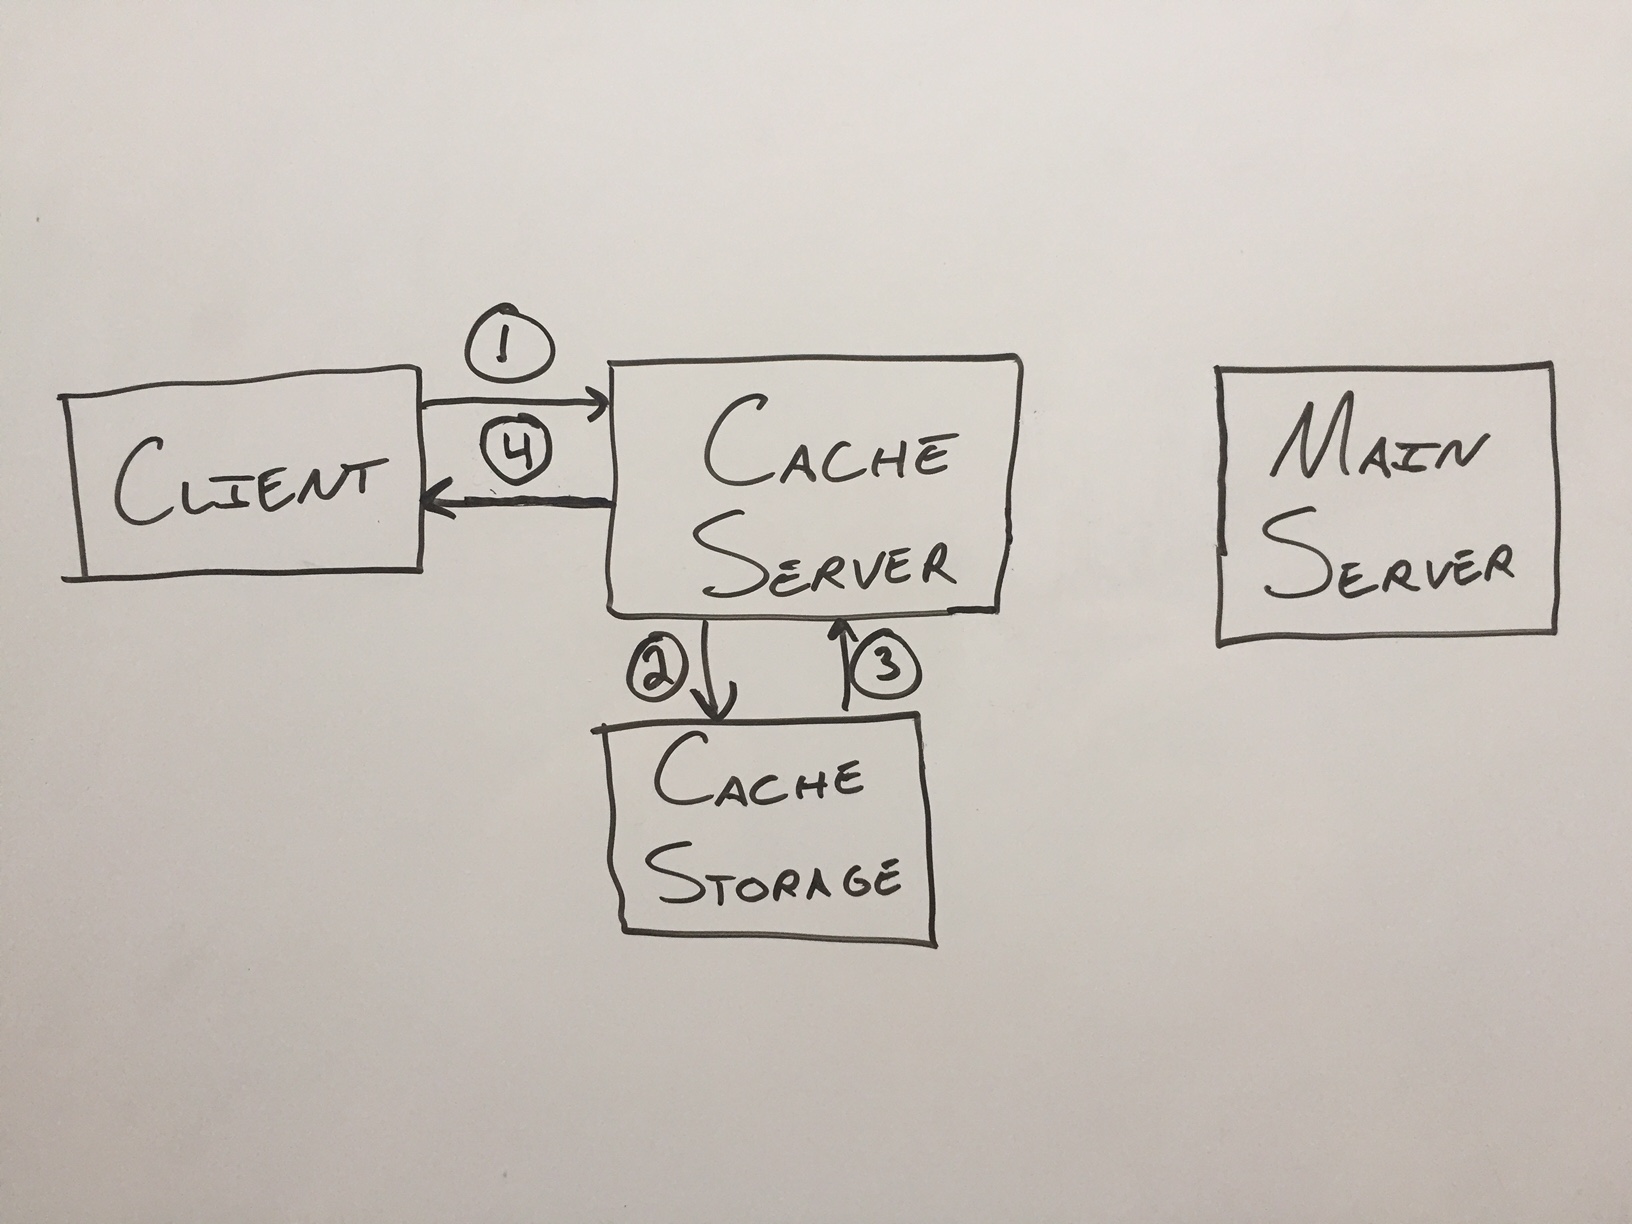 1
4
CLIENT
CACHE
SERVER
MAIN
SERVER
2
3
CACHE
STORAGE